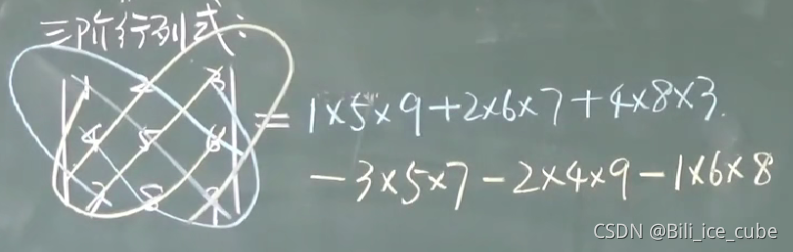 三阶行列式:
| 1 2 3 |
| 4 5 6 | = 1×5×9+2×6×7+4×8×3.
| 7 8 9 | -3×5×7-2×4×9-1×6×8
CSDN @Bili_ice_cube